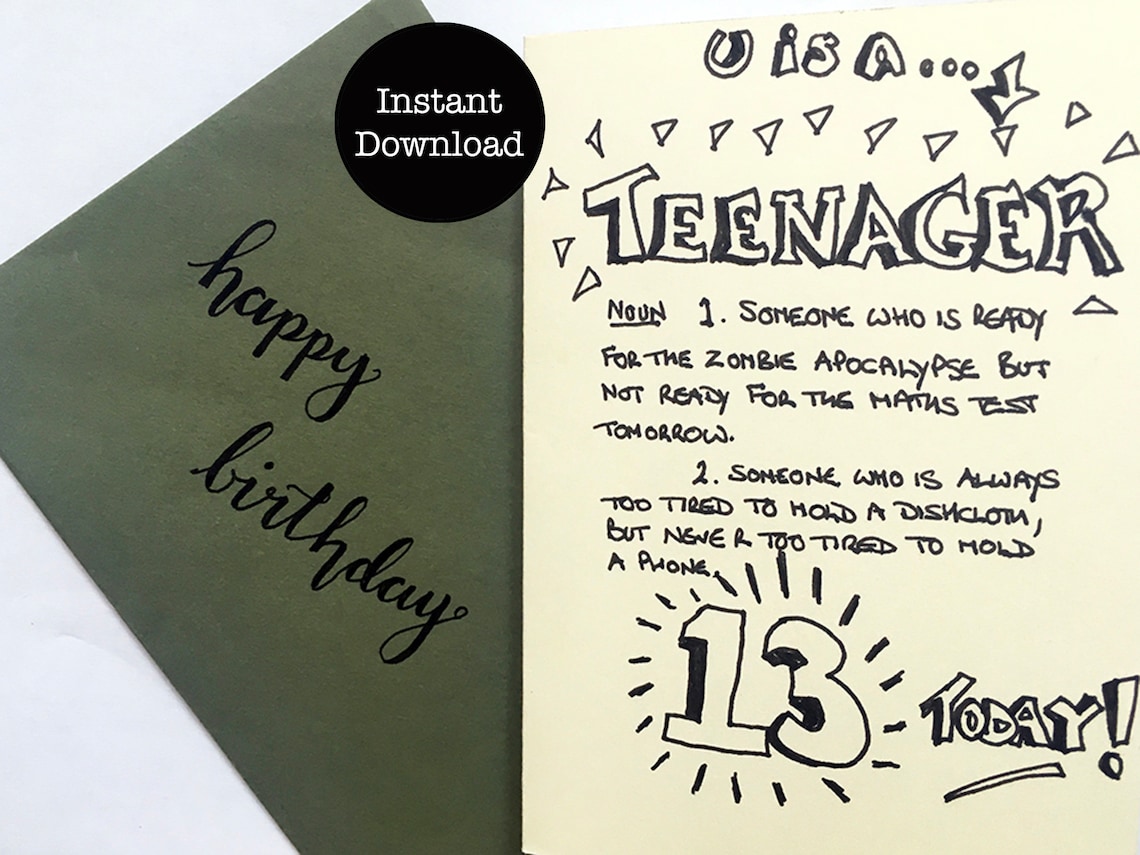 Instant
Download
happy
birthday
U is A...
TEENAGER
NOUN 1. SOMEONE WHO IS READY
FOR THE ZOMBIE APOCALYPSE BUT
NOT READY FOR THE MATHS TEST
TOMORROW.
2. SOMEONE WHO IS ALWAYS
TOO TIRED TO HOLD A DISHCLOTH,
BUT NEVER TOO TIRED TO HOLD
A PHONE.
13
TODAY!